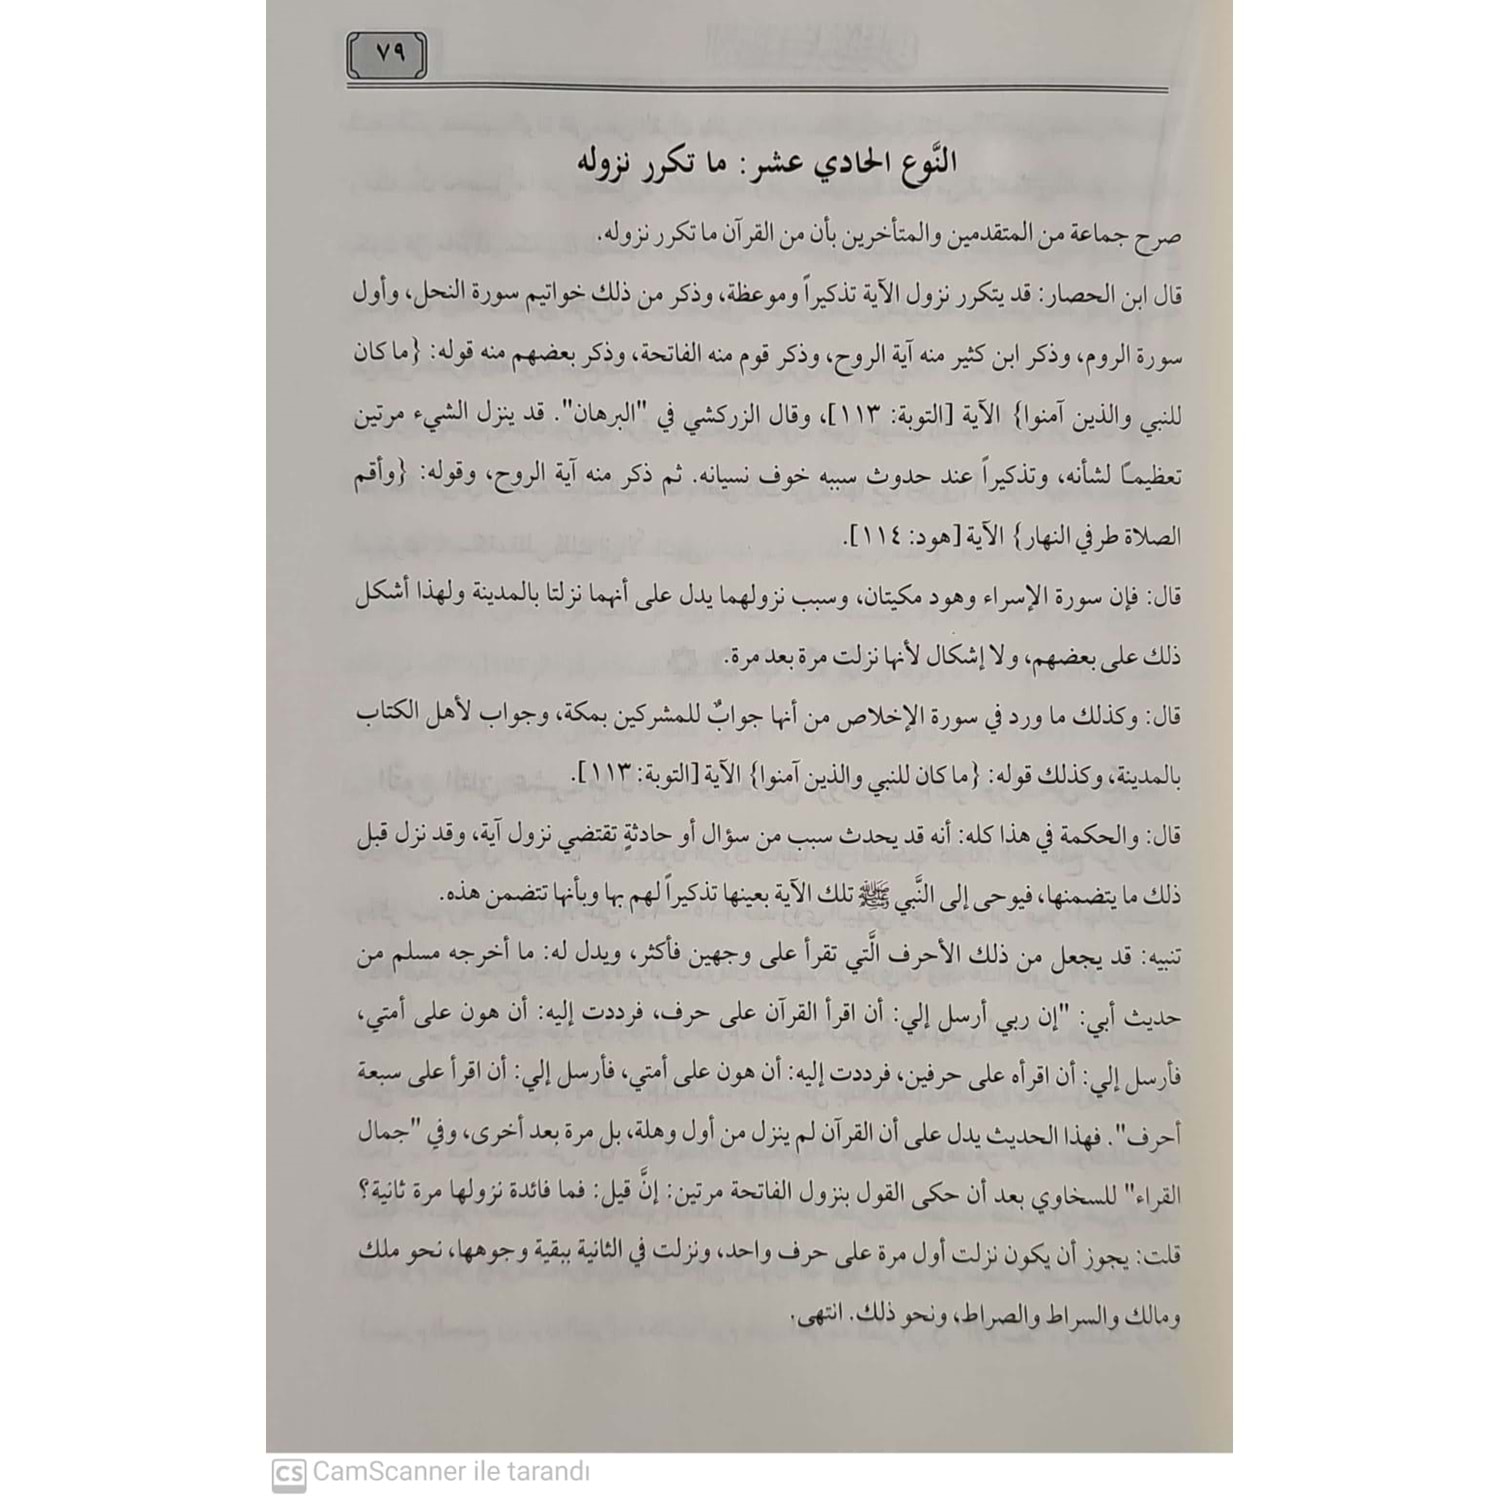 ٧٩
النَّوع الحادي عشر: ما تكرر نزوله
صرح جماعة من المتقدمين والمتأخرين بأن من القرآن ما تكرر نزوله.
قال ابن الحصار: قد يتكرر نزول الآية تذكيراً وموعظة، وذكر من ذلك خواتيم سورة النحل، وأول
سورة الروم، وذكر ابن كثير منه آية الروح، وذكر قوم منه الفاتحة، وذكر بعضهم منه قوله: {ما كان
للنبي والذين آمنوا} الآية [التوبة: ١١٣]، وقال الزركشي في "البرهان". قد ينزل الشيء مرتين
تعظيمـًا لشأنه، وتذكيراً عند حدوث سببه خوف نسيانه. ثم ذكر منه آية الروح، وقوله: {وأقم
الصلاة طرفي النهار} الآية [هود: ١١٤].
قال: فإن سورة الإسراء وهود مكيتان، وسبب نزولهما يدل على أنهما نزلتا بالمدينة ولهذا أشكل
ذلك على بعضهم، ولا إشكال لأنها نزلت مرة بعد مرة.
قال: وكذلك ما ورد في سورة الإخلاص من أنها جوابٌ للمشركين بمكة، وجواب لأهل الكتاب
بالمدينة، وكذلك قوله: {ما كان للنبي والذين آمنوا} الآية [التوبة: ١١٣].
قال: والحكمة في هذا كله: أنه قد يحدث سبب من سؤال أو حادثةٍ تقتضي نزول آية، وقد نزل قبل
ذلك ما يتضمنها، فيوحى إلى النَّبي ﷺ تلك الآية بعينها تذكيراً لهم بها وبأنها تتضمن هذه.
تنبيه: قد يجعل من ذلك الأحرف الَّتي تقرأ على وجهين فأكثر، ويدل له: ما أخرجه مسلم من
حديث أبي: "إن ربي أرسل إلي: أن اقرأ القرآن على حرف، فرددت إليه: أن هون على أمتي،
فأرسل إلي: أن اقرأه على حرفين، فرددت إليه: أن هون على أمتي، فأرسل إلي: أن اقرأ على سبعة
أحرف". فهذا الحديث يدل على أن القرآن لم ينزل من أول وهلة، بل مرة بعد أخرى، وفي "جمال
القراء" للسخاوي بعد أن حكى القول بنزول الفاتحة مرتين: إنَّ قيل: فما فائدة نزولها مرة ثانية؟
قلت: يجوز أن يكون نزلت أول مرة على حرف واحد، ونزلت في الثانية ببقية وجوهها، نحو ملك
ومالك والسراط والصراط، ونحو ذلك. انتهى.
CS CamScanner ile tarandı